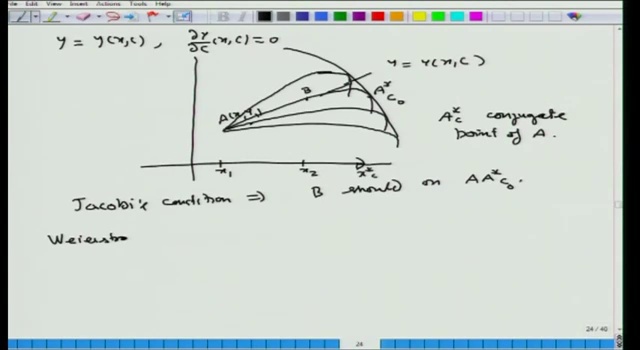 File Edit View Insert Actions Tools Help
y = y(x,c) , ∂y/∂c (x,c) = 0
y = y(x,c)
B
A*c₀
A(x₁,y₁)
A*c conjugate
point of A.
x₁ x₂ x*c
Jacobi's condition ⇒ B should on AA*c₀.
Weierstra
24 / 40
24